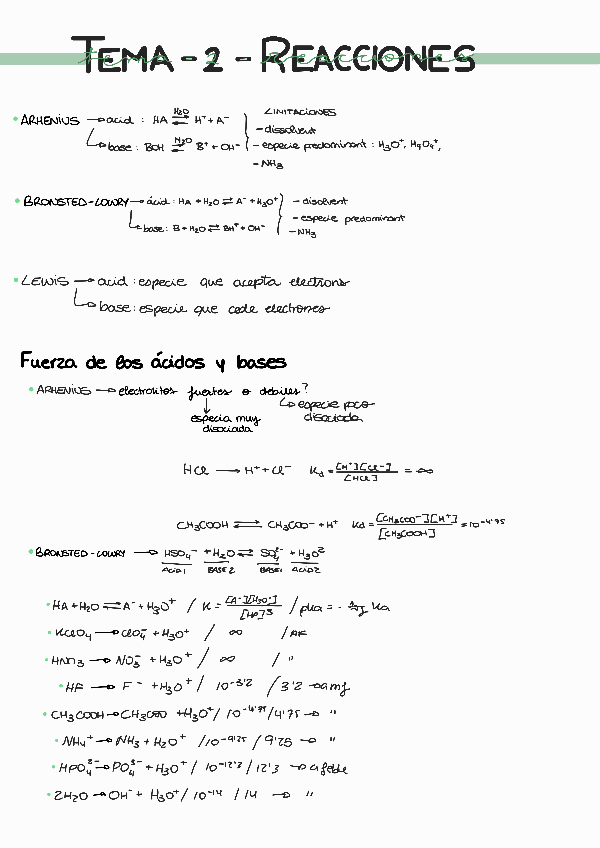 TEMA - 2 - REACCIONES
• ARHENIUS → acid : HA ⇌ H⁺ + A⁻ H₂O LIMITACIONES
→ base : BOH ⇌ B⁺ + OH⁻ H₂O - dissolvent
- especie predominant : H₃O⁺, H₉O₄⁺,
- NH₃
• BRONSTED-LOWRY → ácid : HA + H₂O ⇌ A⁻ + H₃O⁺ - disolvent
→ base : B + H₂O ⇌ BH⁺ + OH⁻ - especie predominant
- NH₃
• LEWIS → acid : especie que acepta electrons
→ base : especie que cede electrones
Fuerza de los ácidos y bases
• ARHENIUS → electrolitos fuertes o debiles?
→ especie poco disociada
↓ especia muy disociada
HCl → H⁺ + Cl⁻ Kd = [H⁺][Cl⁻] / [HCl] = ∞
CH₃COOH ⇌ CH₃COO⁻ + H⁺ Kd = [CH₃COO⁻][H⁺] / [CH₃COOH] = 10⁻⁴'⁷⁵
• BRONSTED-LOWRY → HSO₄⁻ + H₂O ⇌ SO₄²⁻ + H₃O
ACID 1 BASE 2 BASE 1 ACID 2
• HA + H₂O ⇌ A⁻ + H₃O⁺ / K = [A⁻][H₃O⁺] / [HA] / pKa = - Ka
• ClO₄ → ClO₄⁻ + H₃O⁺ / ∞ / AF
• HNO₃ → NO₃⁻ + H₃O⁺ / ∞ / "
• HF → F⁻ + H₃O⁺ / 10⁻³'² / 3'2 →
• CH₃COOH → CH₃COO + H₃O⁺ / 10⁻⁴'⁷⁵ / 4'75 → "
• NH₄⁺ → NH₃ + H₂O⁺ / 10⁻⁹'²⁵ / 9'25 → "
• HPO₄²⁻ → PO₄³⁻ + H₃O⁺ / 10⁻¹²'³ / 12'3 →
• 2H₂O → OH⁻ + H₃O⁺ / 10⁻¹⁴ / 14 → "